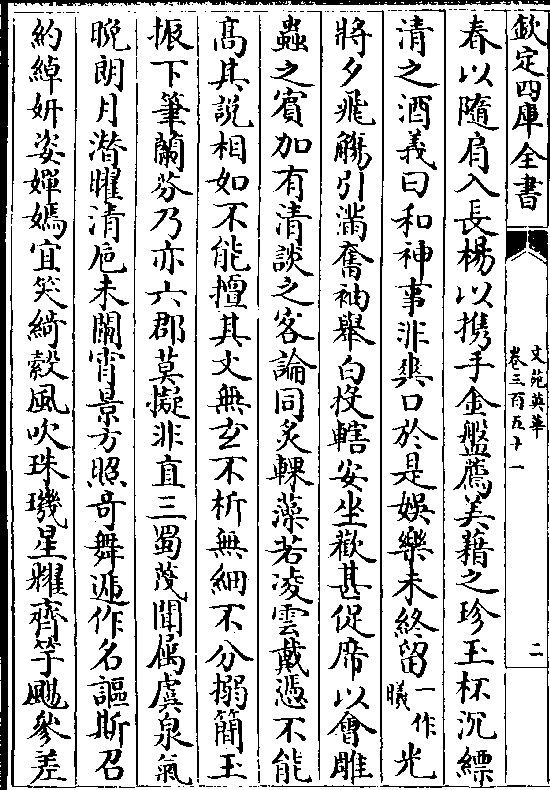 欽定四庫全書
文苑英華
卷三百五十一
二
春以隨肩入長楊以携手金盤薦美藉之珍玉杯沉縹
清之酒義曰和神事非爽口於是娛樂未終留一作曦光
將夕飛觴引滿奮袖舉白投轄安坐歡甚促席以會雕
蟲之賓加有清談之客論同炙輠藻若凌雲戴憑不能
高其說相如不能擅其文無玄不析無細不分搦簡玉
振下筆蘭芬乃亦六郡莫擬非直三蜀茂聞屬虞泉氣
晩朗月潜曜清巵未闌宵景方照奇舞遞作名謳斯召
約綽妍姿嬋媯宜笑綺縠風吹珠璣星耀齊竽颺參差